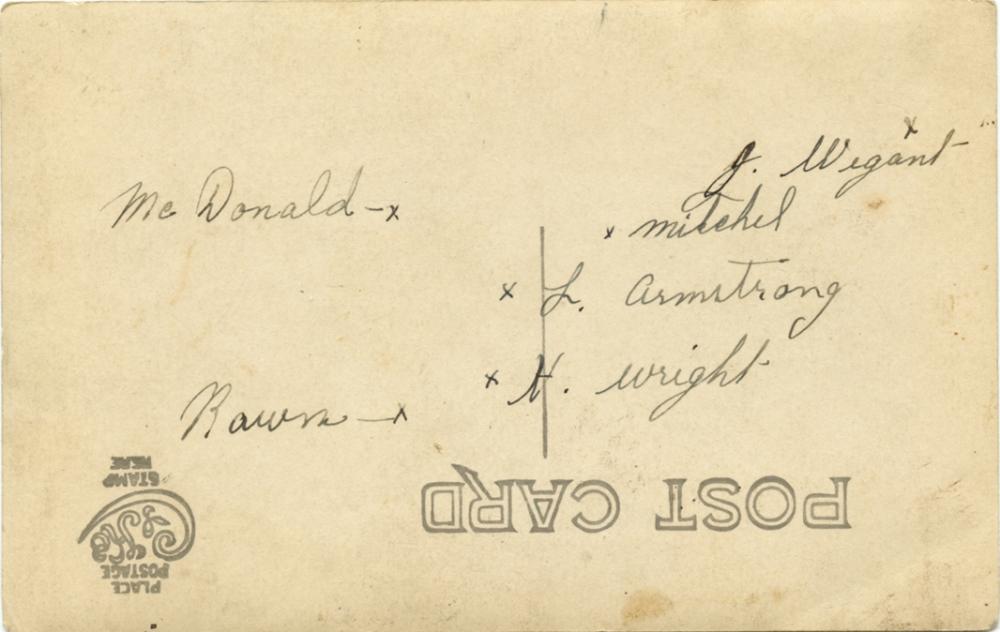 J. Wegant
Mc Donald - x
x mitchel
x L. Armstrong
x H. Wright
Rawn - x
POST CARD
PLACE
POSTAGE
STAMP
HERE